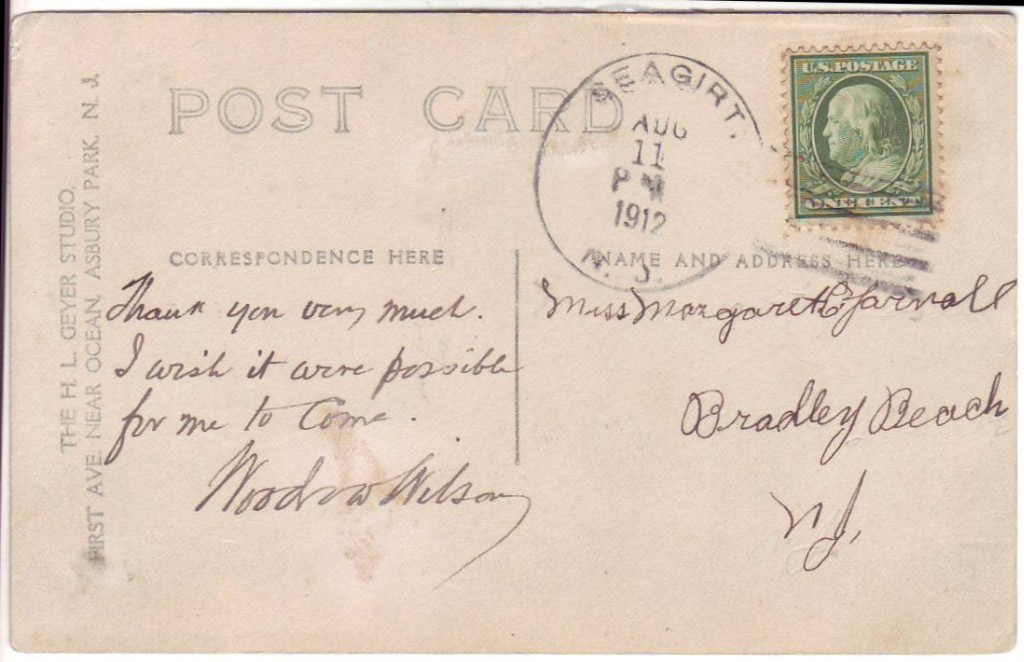 POST CARD
THE H. L. GEYER STUDIO,
FIRST AVE. NEAR OCEAN, ASBURY PARK, N. J.
SEAGIRT,
AUG
11
PM
1912
N. J.
U.S. POSTAGE
ONE CENT
CORRESPONDENCE HERE
NAME AND ADDRESS HERE
Thank you very much.
I wish it were possible
for me to come.
Woodrow Wilson
Miss Margaret E
Bradley Beach
NJ.